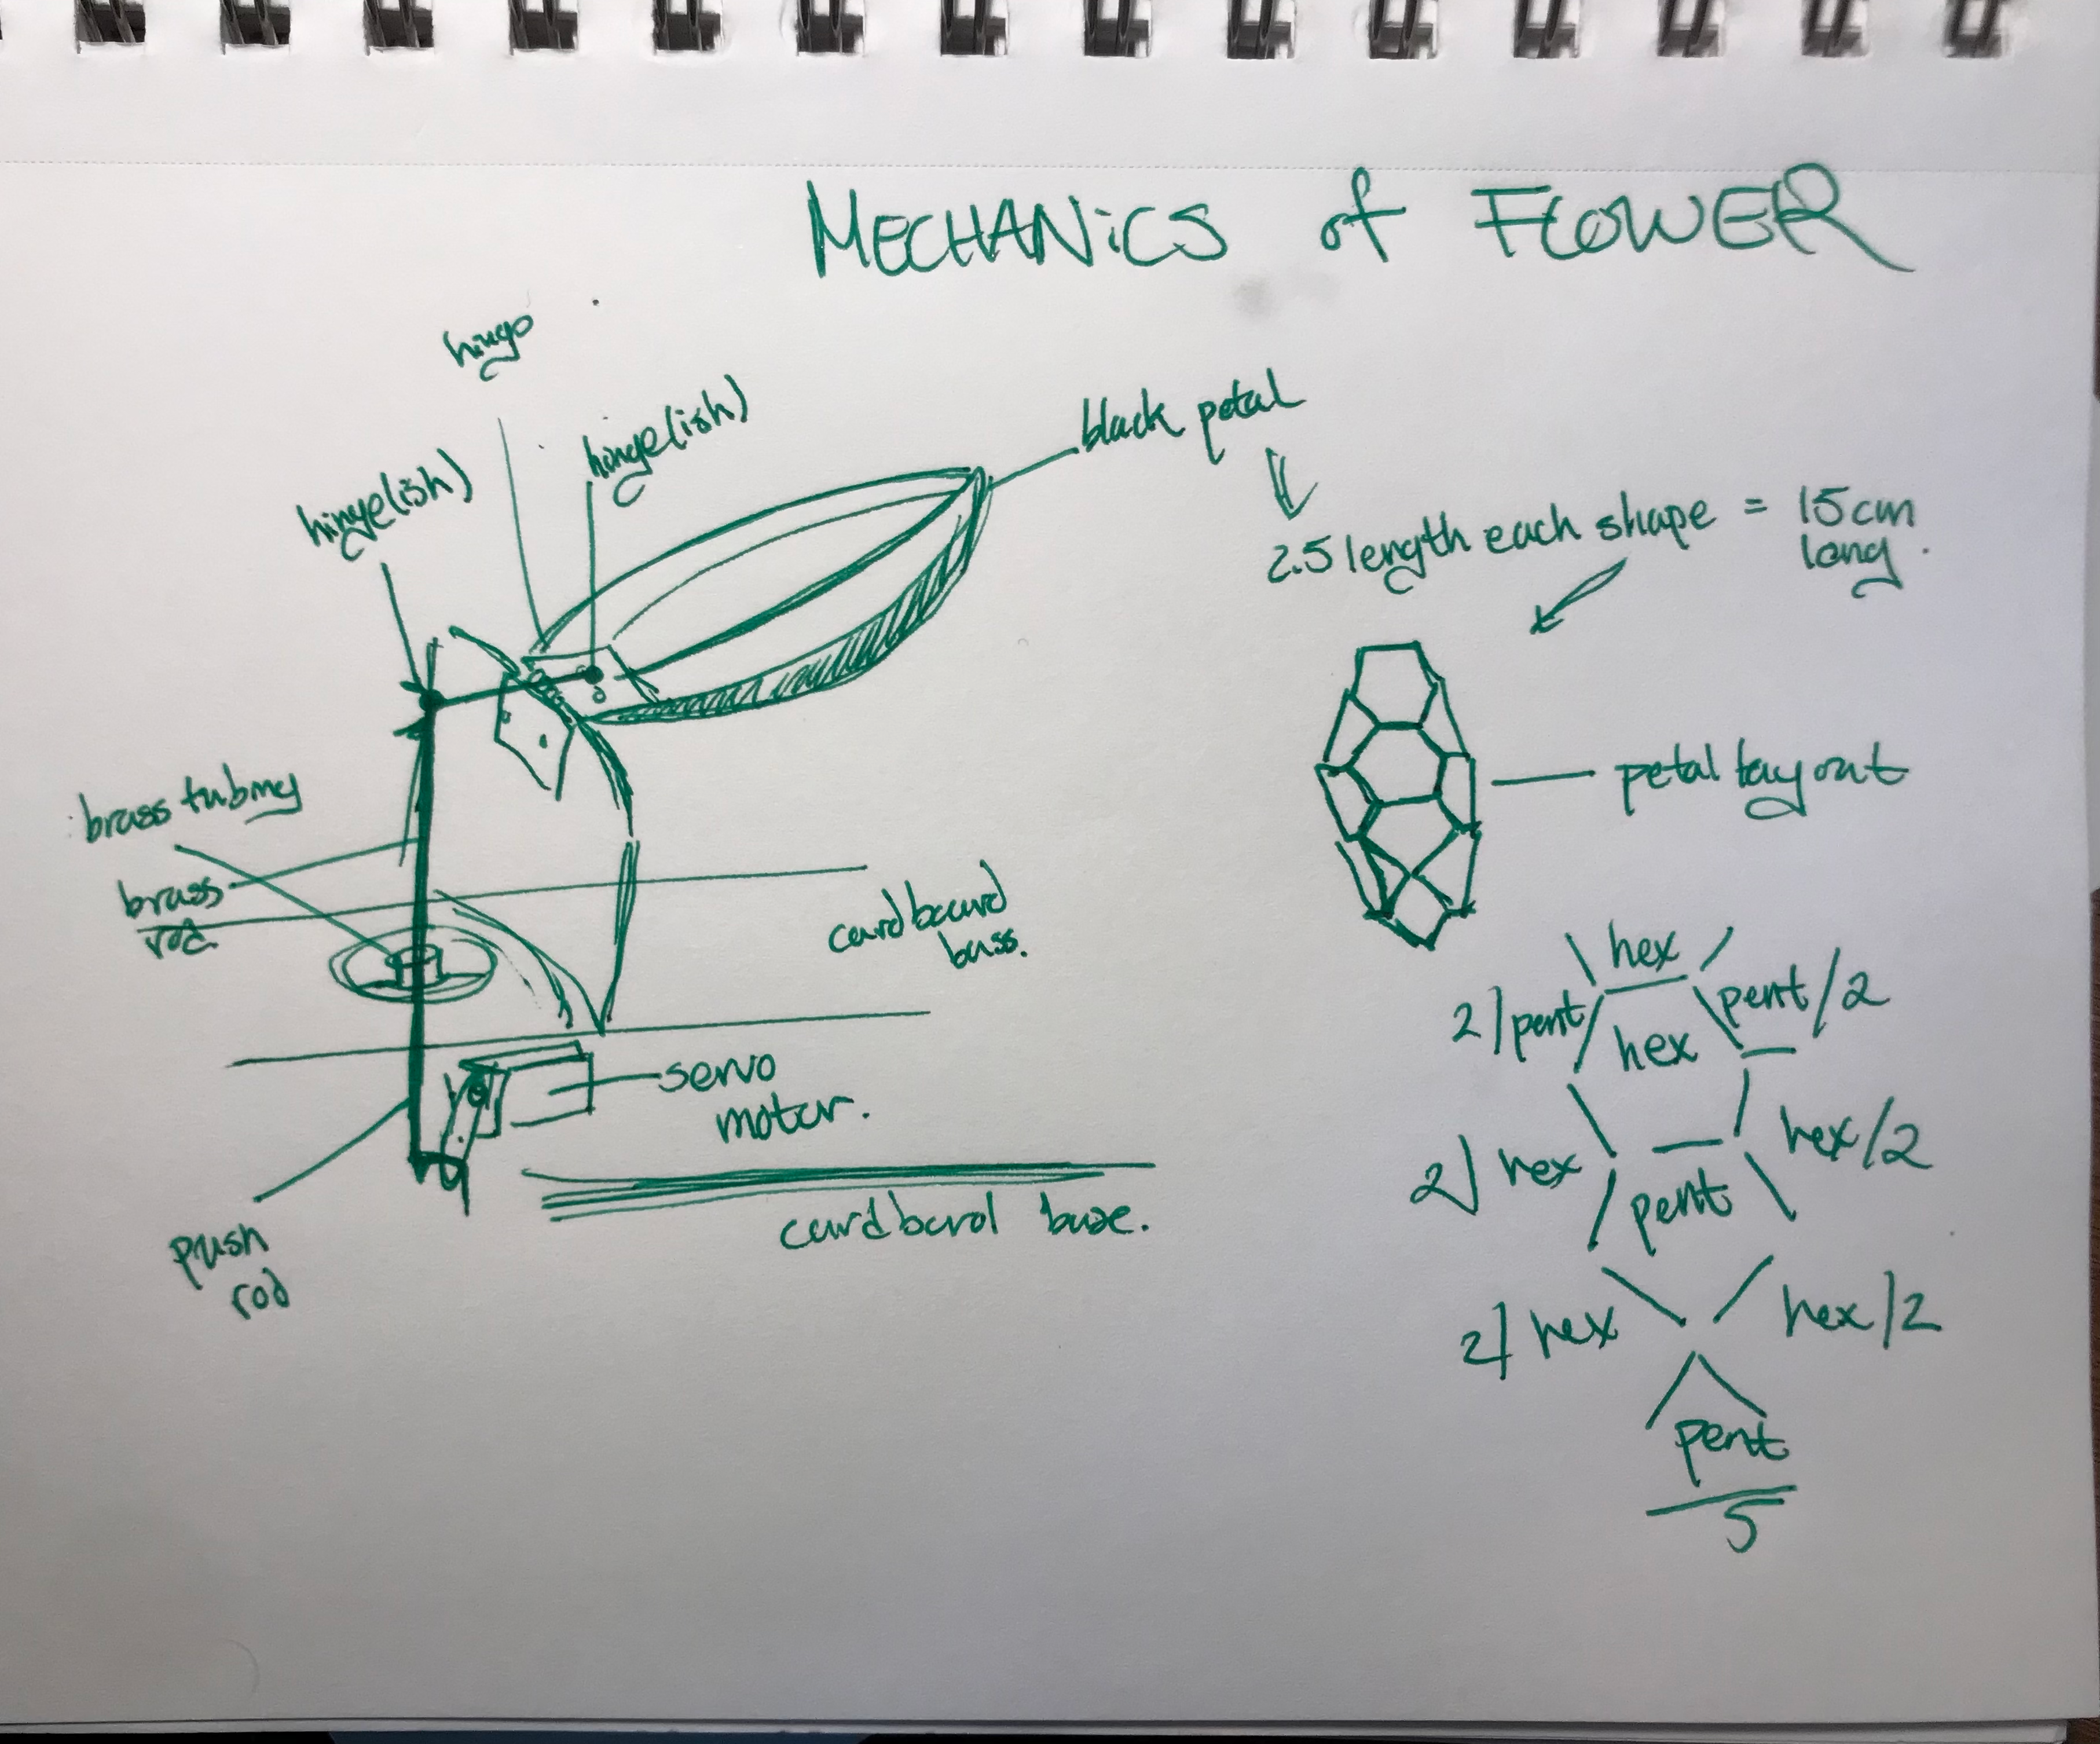 MECHANiCS of FLOWER
hinge
hinge(ish)
hinge(ish)
black petal
2.5 length each shape = 15cm
long.
brass tubing
brass
rod
petal layout
cardboard
base.
servo
motor.
push
rod
cardbord base.
hex
2/pent
pent/2
hex
2/ hex
hex/2
pent
2/ hex
hex/2
pent
5